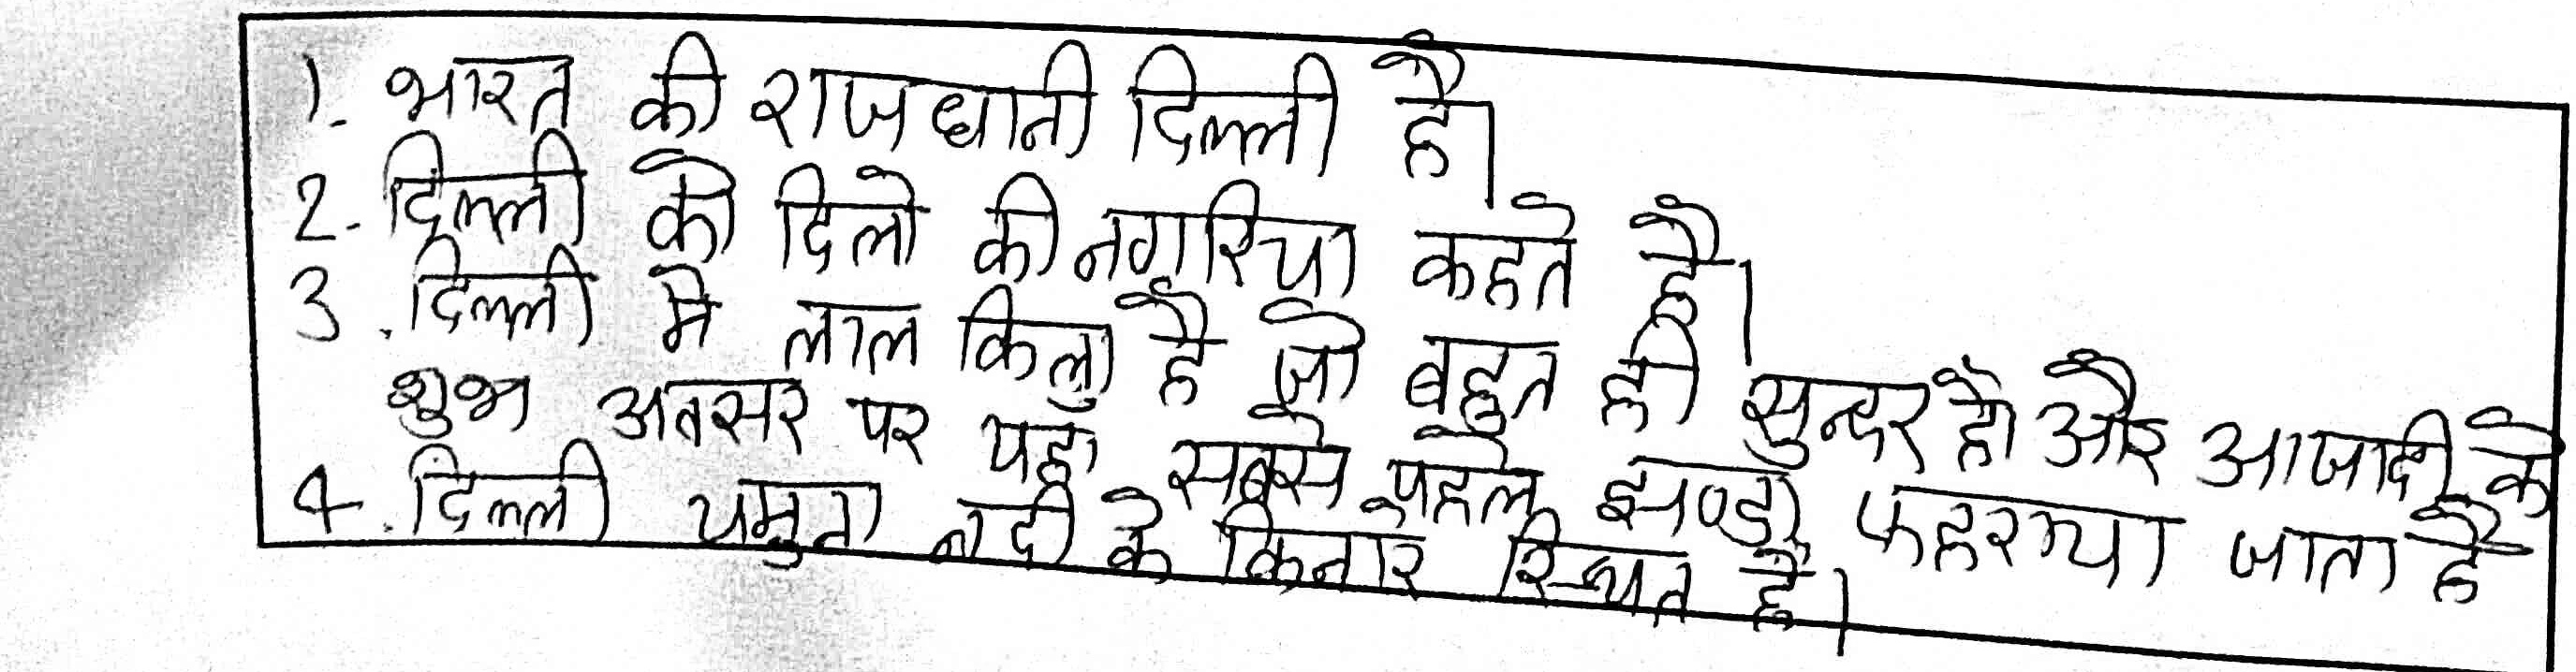 1. भारत की राजधानी दिल्ली है।
2. दिल्ली को दिलो की नगरिया कहते है।
3. दिल्ली मे लाल किला है जो बहुत ही सुन्दर है। और आजादी के
शुभ अवसर पर यहाँ सबसे पहले झण्डा फहराया जाता है
4. दिल्ली यमुना नदी के किनारे स्थित है।